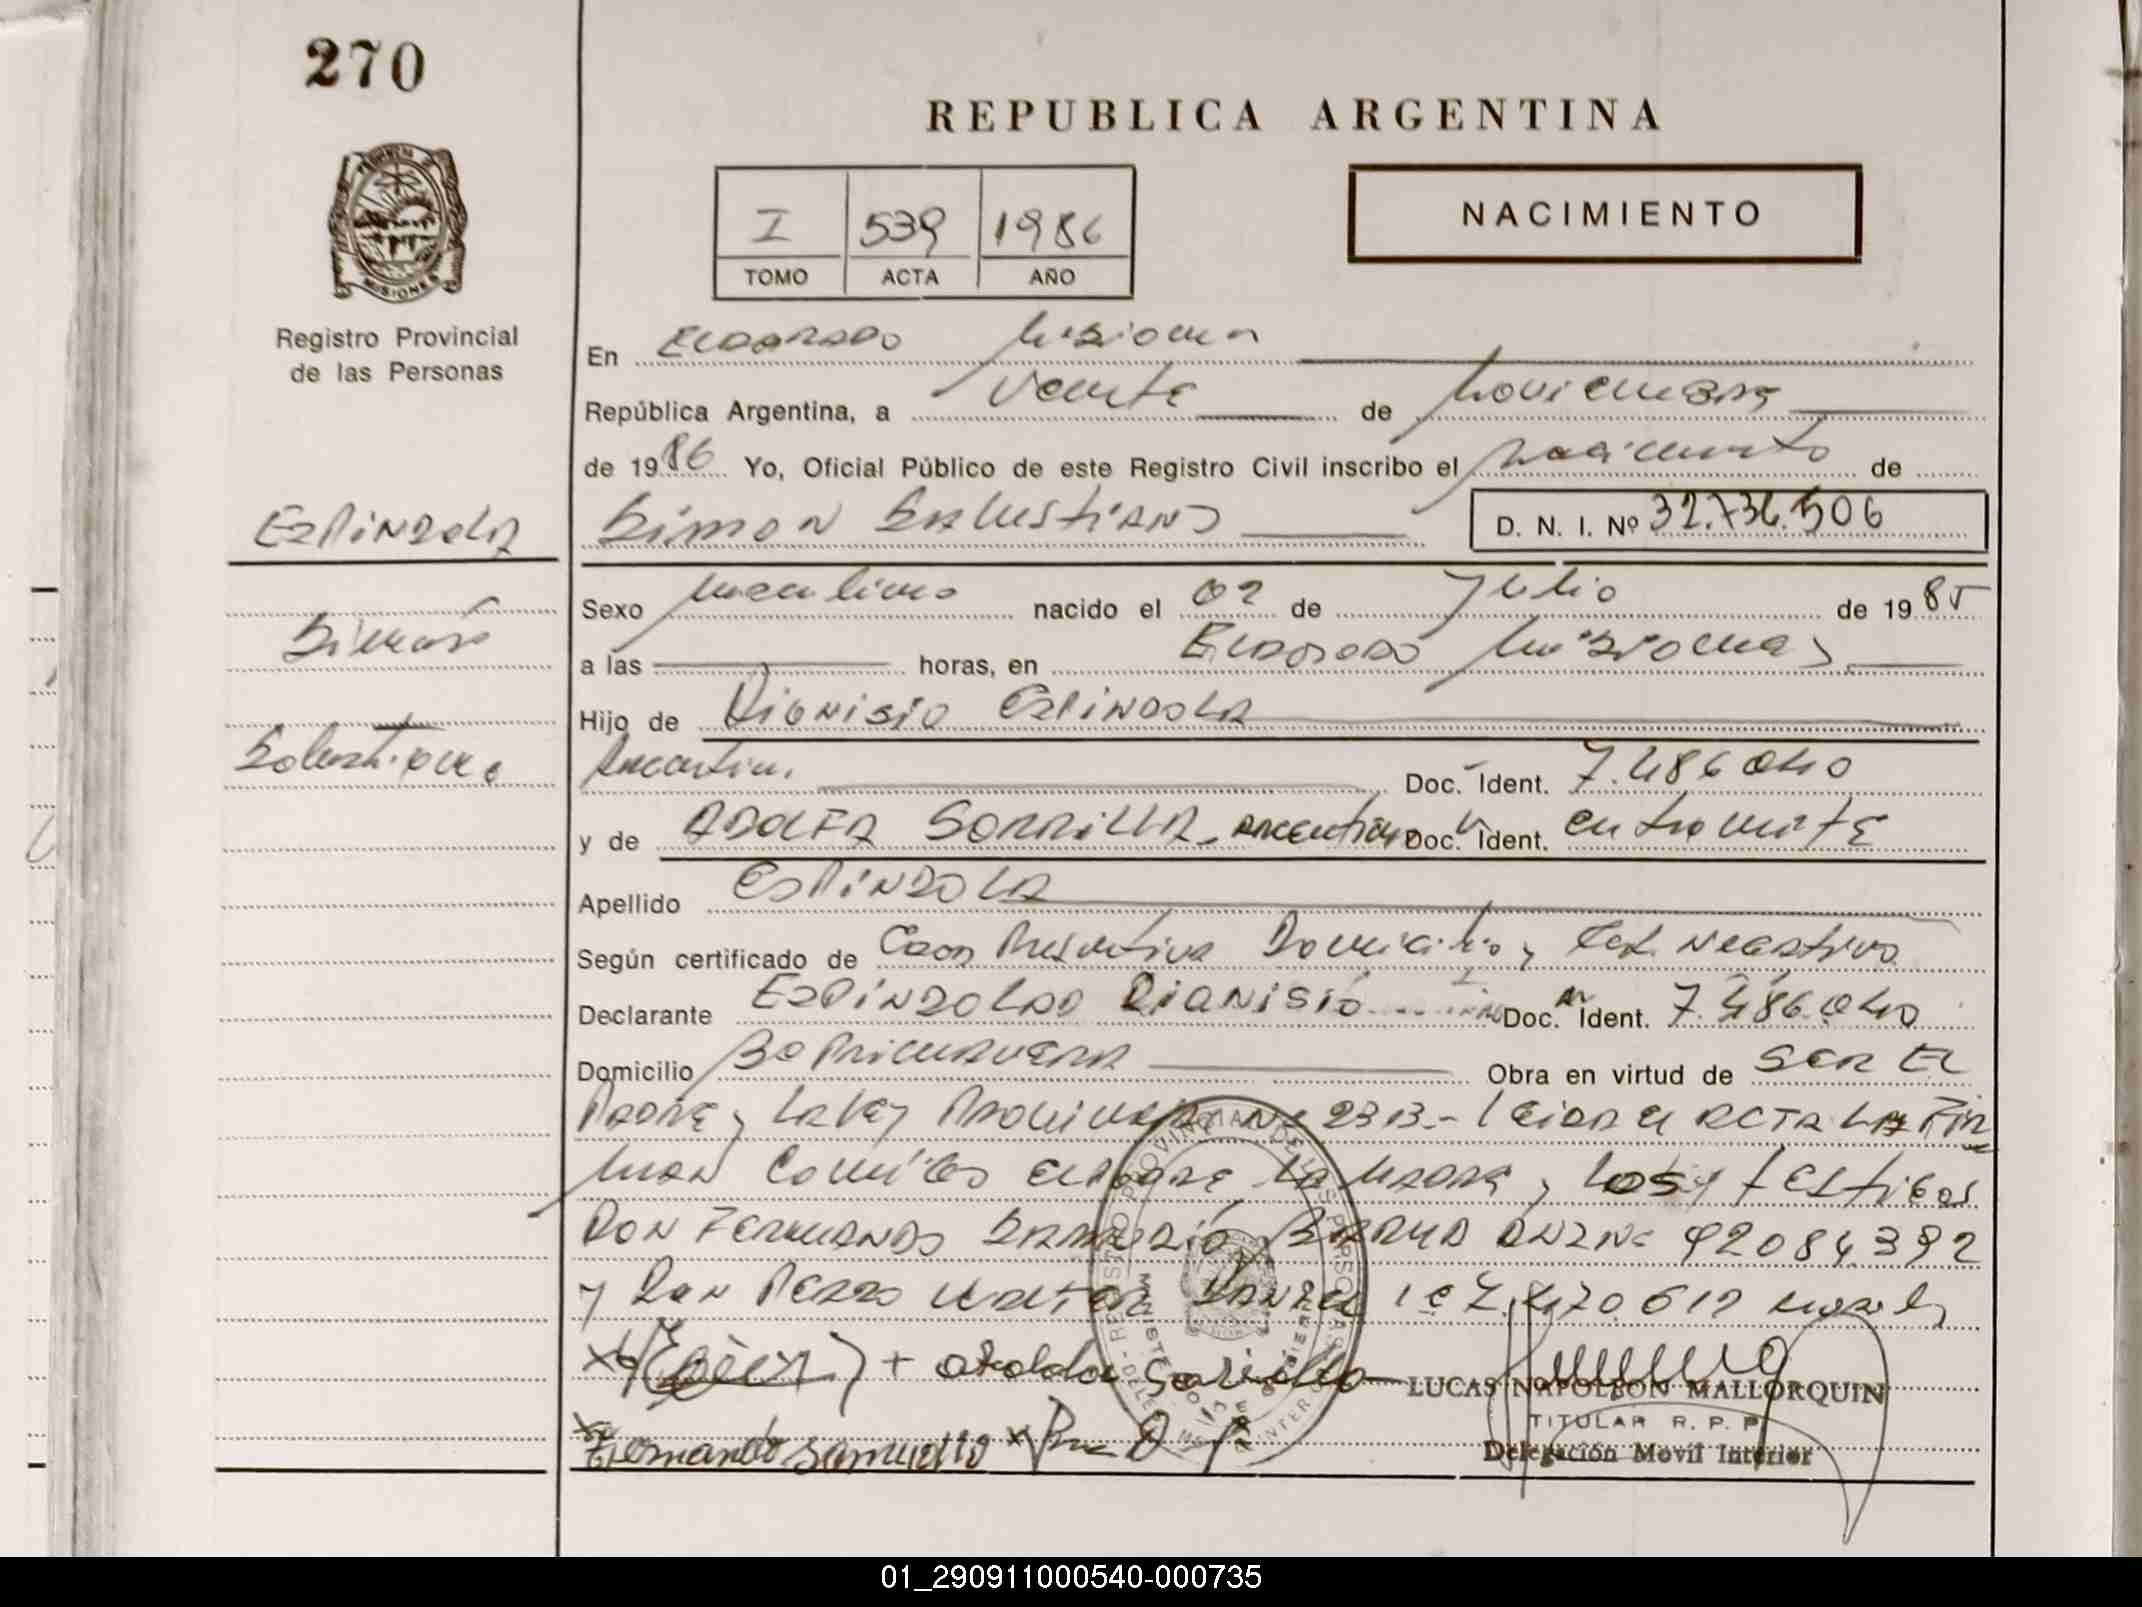 270
REPUBLICA ARGENTINA
I 539 1986
TOMO ACTA AÑO
NACIMIENTO
PROVINCIA DE MISIONES
Registro Provincial
de las Personas
En ELDORADO Misiones
República Argentina, a Veinte de Noviembre
de 1986 Yo, Oficial Público de este Registro Civil inscribo el nacimiento de
ESPINDOLA
SIMON SALUSTIANO D. N. I. Nº 32.736.506
Sexo masculino nacido el 02 de Julio de 1985
Simón
a las horas, en ELDORADO Misiones
Hijo de DIONISIO ESPINDOLA
Salustiano
Argentino. Doc. Ident. 7.486.040
y de ADOLFA SORRILLA, argentina Doc. Ident. en tramite
Apellido ESPINDOLA
Según certificado de Domicilio y Cert. Negativo
Declarante ESPINDOLA DIONISIO Doc. Ident. 7.486.040
Domicilio Bº PRIMAVERA Obra en virtud de SER EL
PADRE y LA LEY Nº 2313.- LEIDA EL ACTA LA FIR
MAN CONMIGO EL PADRE LA MADRE y LOS TESTIGOS
DON FERNANDO DNI Nº 92084.392
y DON PEDRO
Adolfa Sorrilla
Fernando Samudio
LUCAS NAPOLEON MALLORQUIN
TITULAR R. P. P.
Delegación Movil Interior
REGISTRO PROVINCIAL DE LAS PERSONAS
01_290911000540-000735